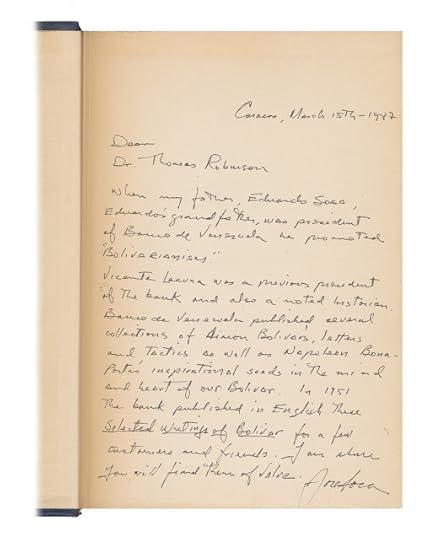 Caracas, March 15th - 1987
Dear
Dr. Thomas Robinson
When my father, Eduardo Sosa,
Eduardo's grandfather, was president
of Banco de Venezuela he promoted
"Bolivarianism."
Vicente Lecuna was a previous president
of the bank and also a noted historian.
Banco de Venezuela published several
collections of Simon Bolivar's, letters
and tactics as well as Napoleon Bona-
parte's inspirational seeds in the mind
and heart of our Bolivar. In 1951
the bank published in English these
Selected Writings of Bolivar for a few
customers and friends. I am sure
you will find them of value.